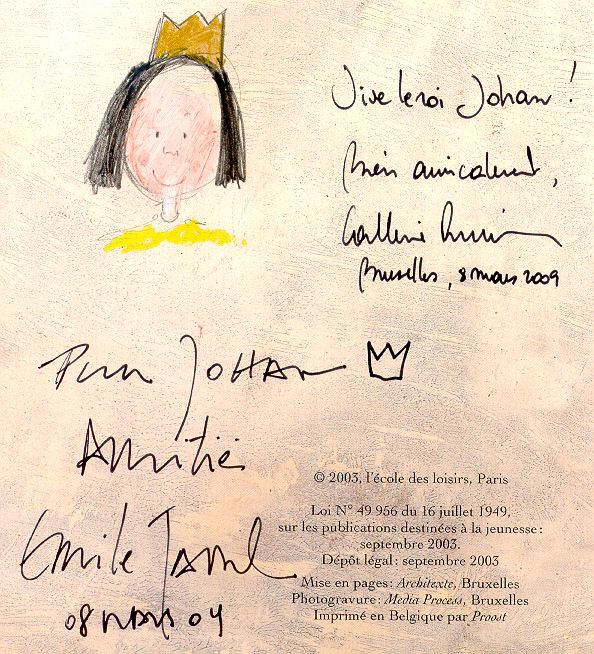 Vive le roi Johan !
Bien amicalement,
Bruxelles, 8 mars 2009
Pour JOHAN
Amitiés
Emile
08 MARS 09
© 2003, l'école des loisirs, Paris
Loi N° 49 956 du 16 juillet 1949,
sur les publications destinées à la jeunesse :
septembre 2003.
Dépôt légal : septembre 2003
Mise en pages : Architexte, Bruxelles
Photogravure : Media Process, Bruxelles
Imprimé en Belgique par Proost